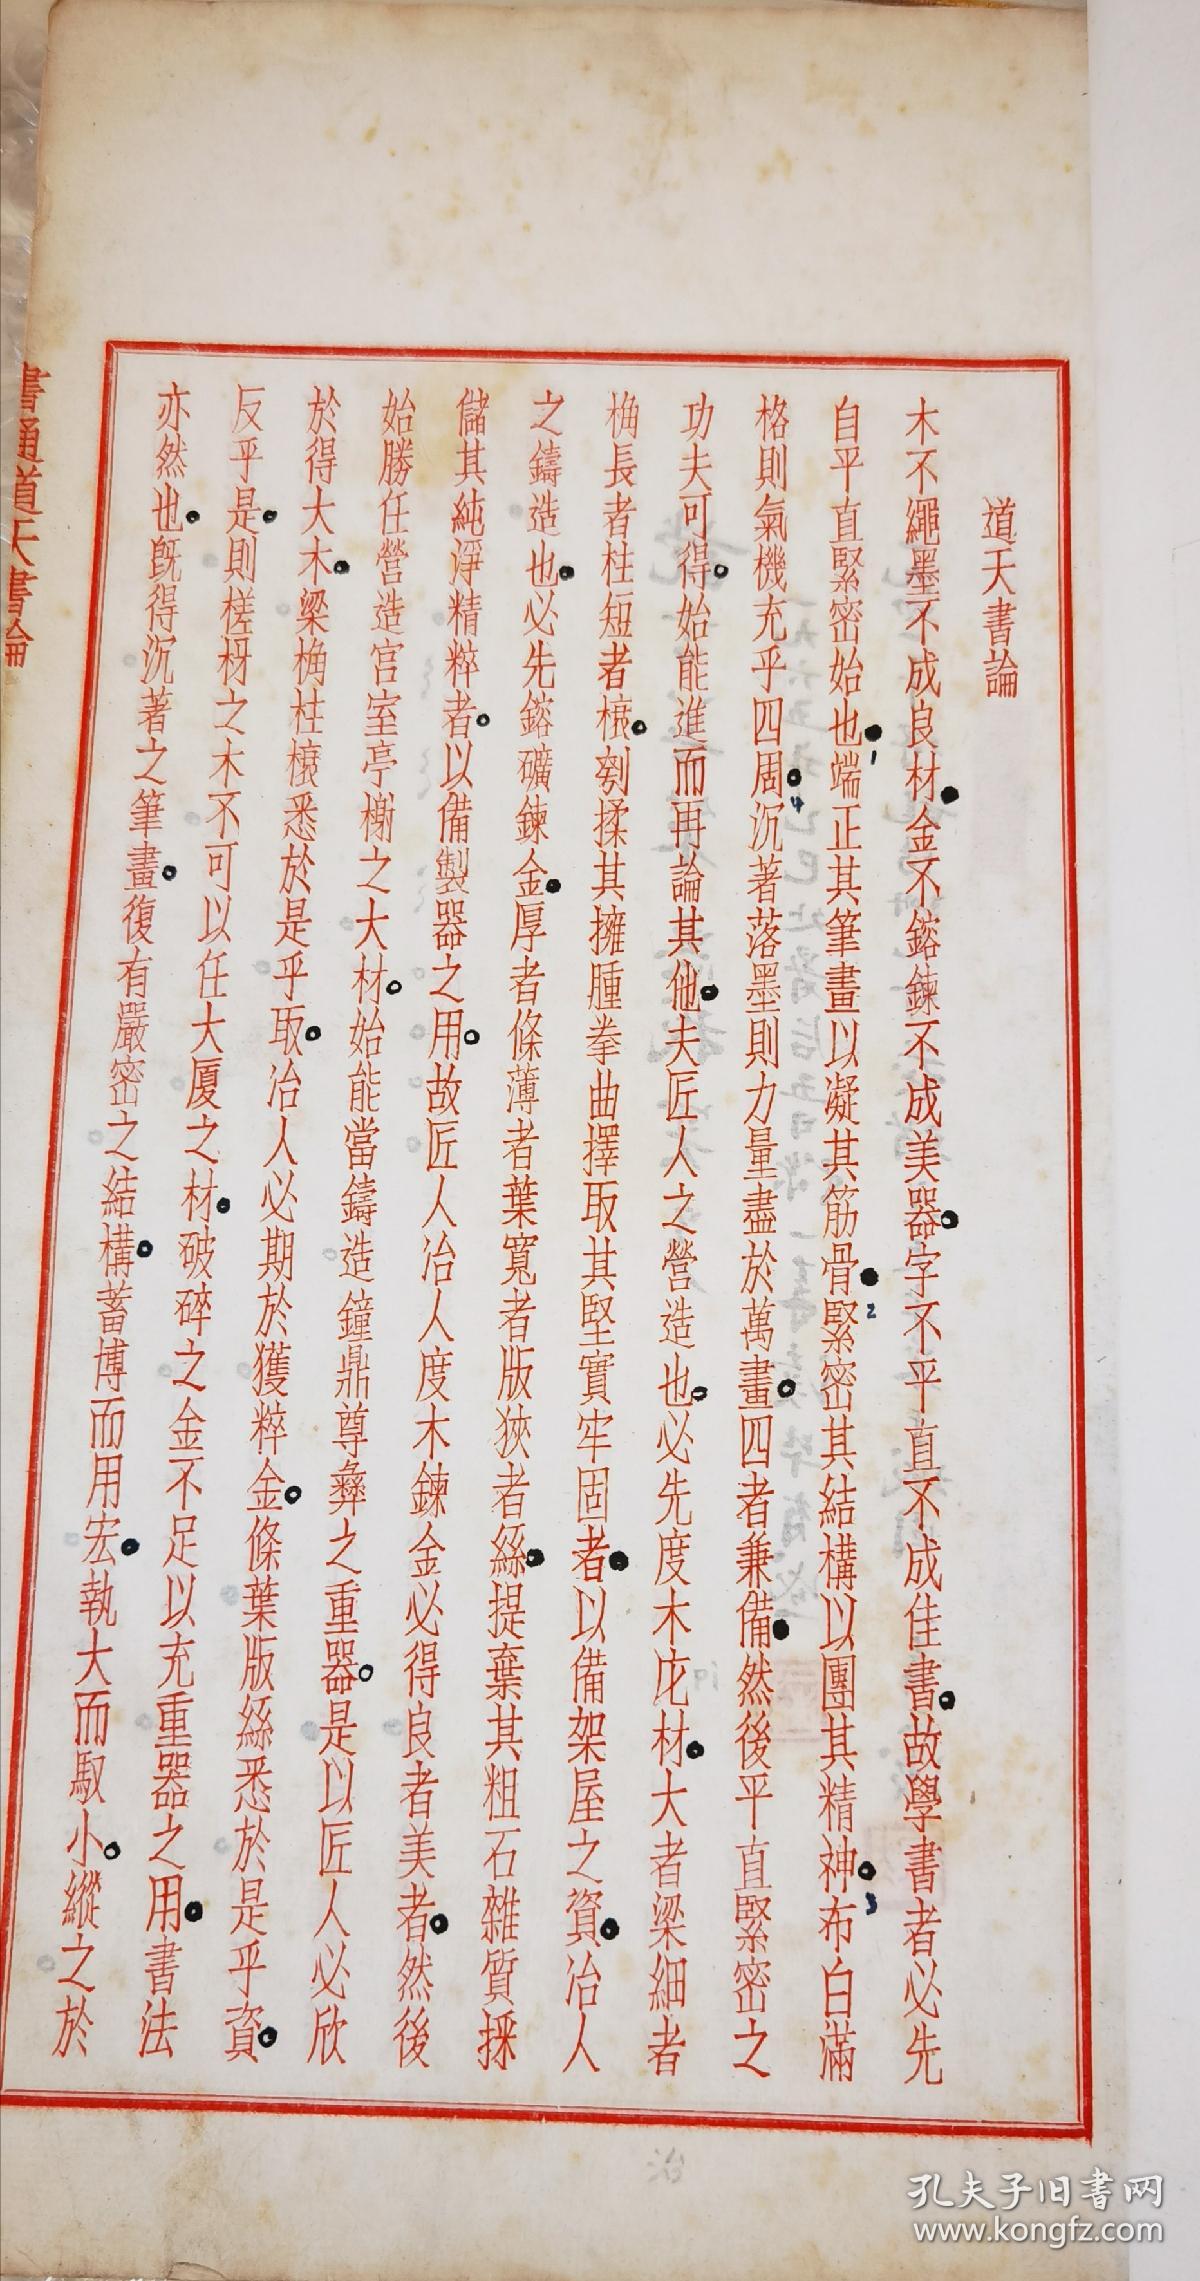 道天書論
木不繩墨不成良材金不鎔鍊不成美器字不平直不成佳書故學書者必先
自平直緊密始也端正其筆畫以凝其筋骨緊密其結構以團其精神布白滿
格則氣機充乎四周沉著落墨則力量盡於萬畫四者兼備然後平直緊密之
功夫可得始能進而再論其他夫匠人之營造也必先度木庀材大者梁細者
桷長者柱短者榱刳揉其擁腫拳曲擇取其堅實牢固者以備架屋之資冶人
之鑄造也必先鎔礦鍊金厚者條薄者葉寬者版狹者絲提棄其粗石雜質採
儲其純淨精粹者以備製器之用故匠人冶人度木鍊金必得良者美者然後
始勝任營造宮室亭榭之大材始能當鑄造鐘鼎尊彝之重器是以匠人必欣
於得大木梁桷柱榱悉於是乎取冶人必期於獲粹金條葉版絲悉於是乎資
反乎是則槎枒之木不可以任大厦之材破碎之金不足以充重器之用書法
亦然也既得沉著之筆畫復有嚴密之結構蓄博而用宏執大而馭小縱之於
書通道天書論
1
2
3
4
孔夫子旧书网
www.kongfz.com